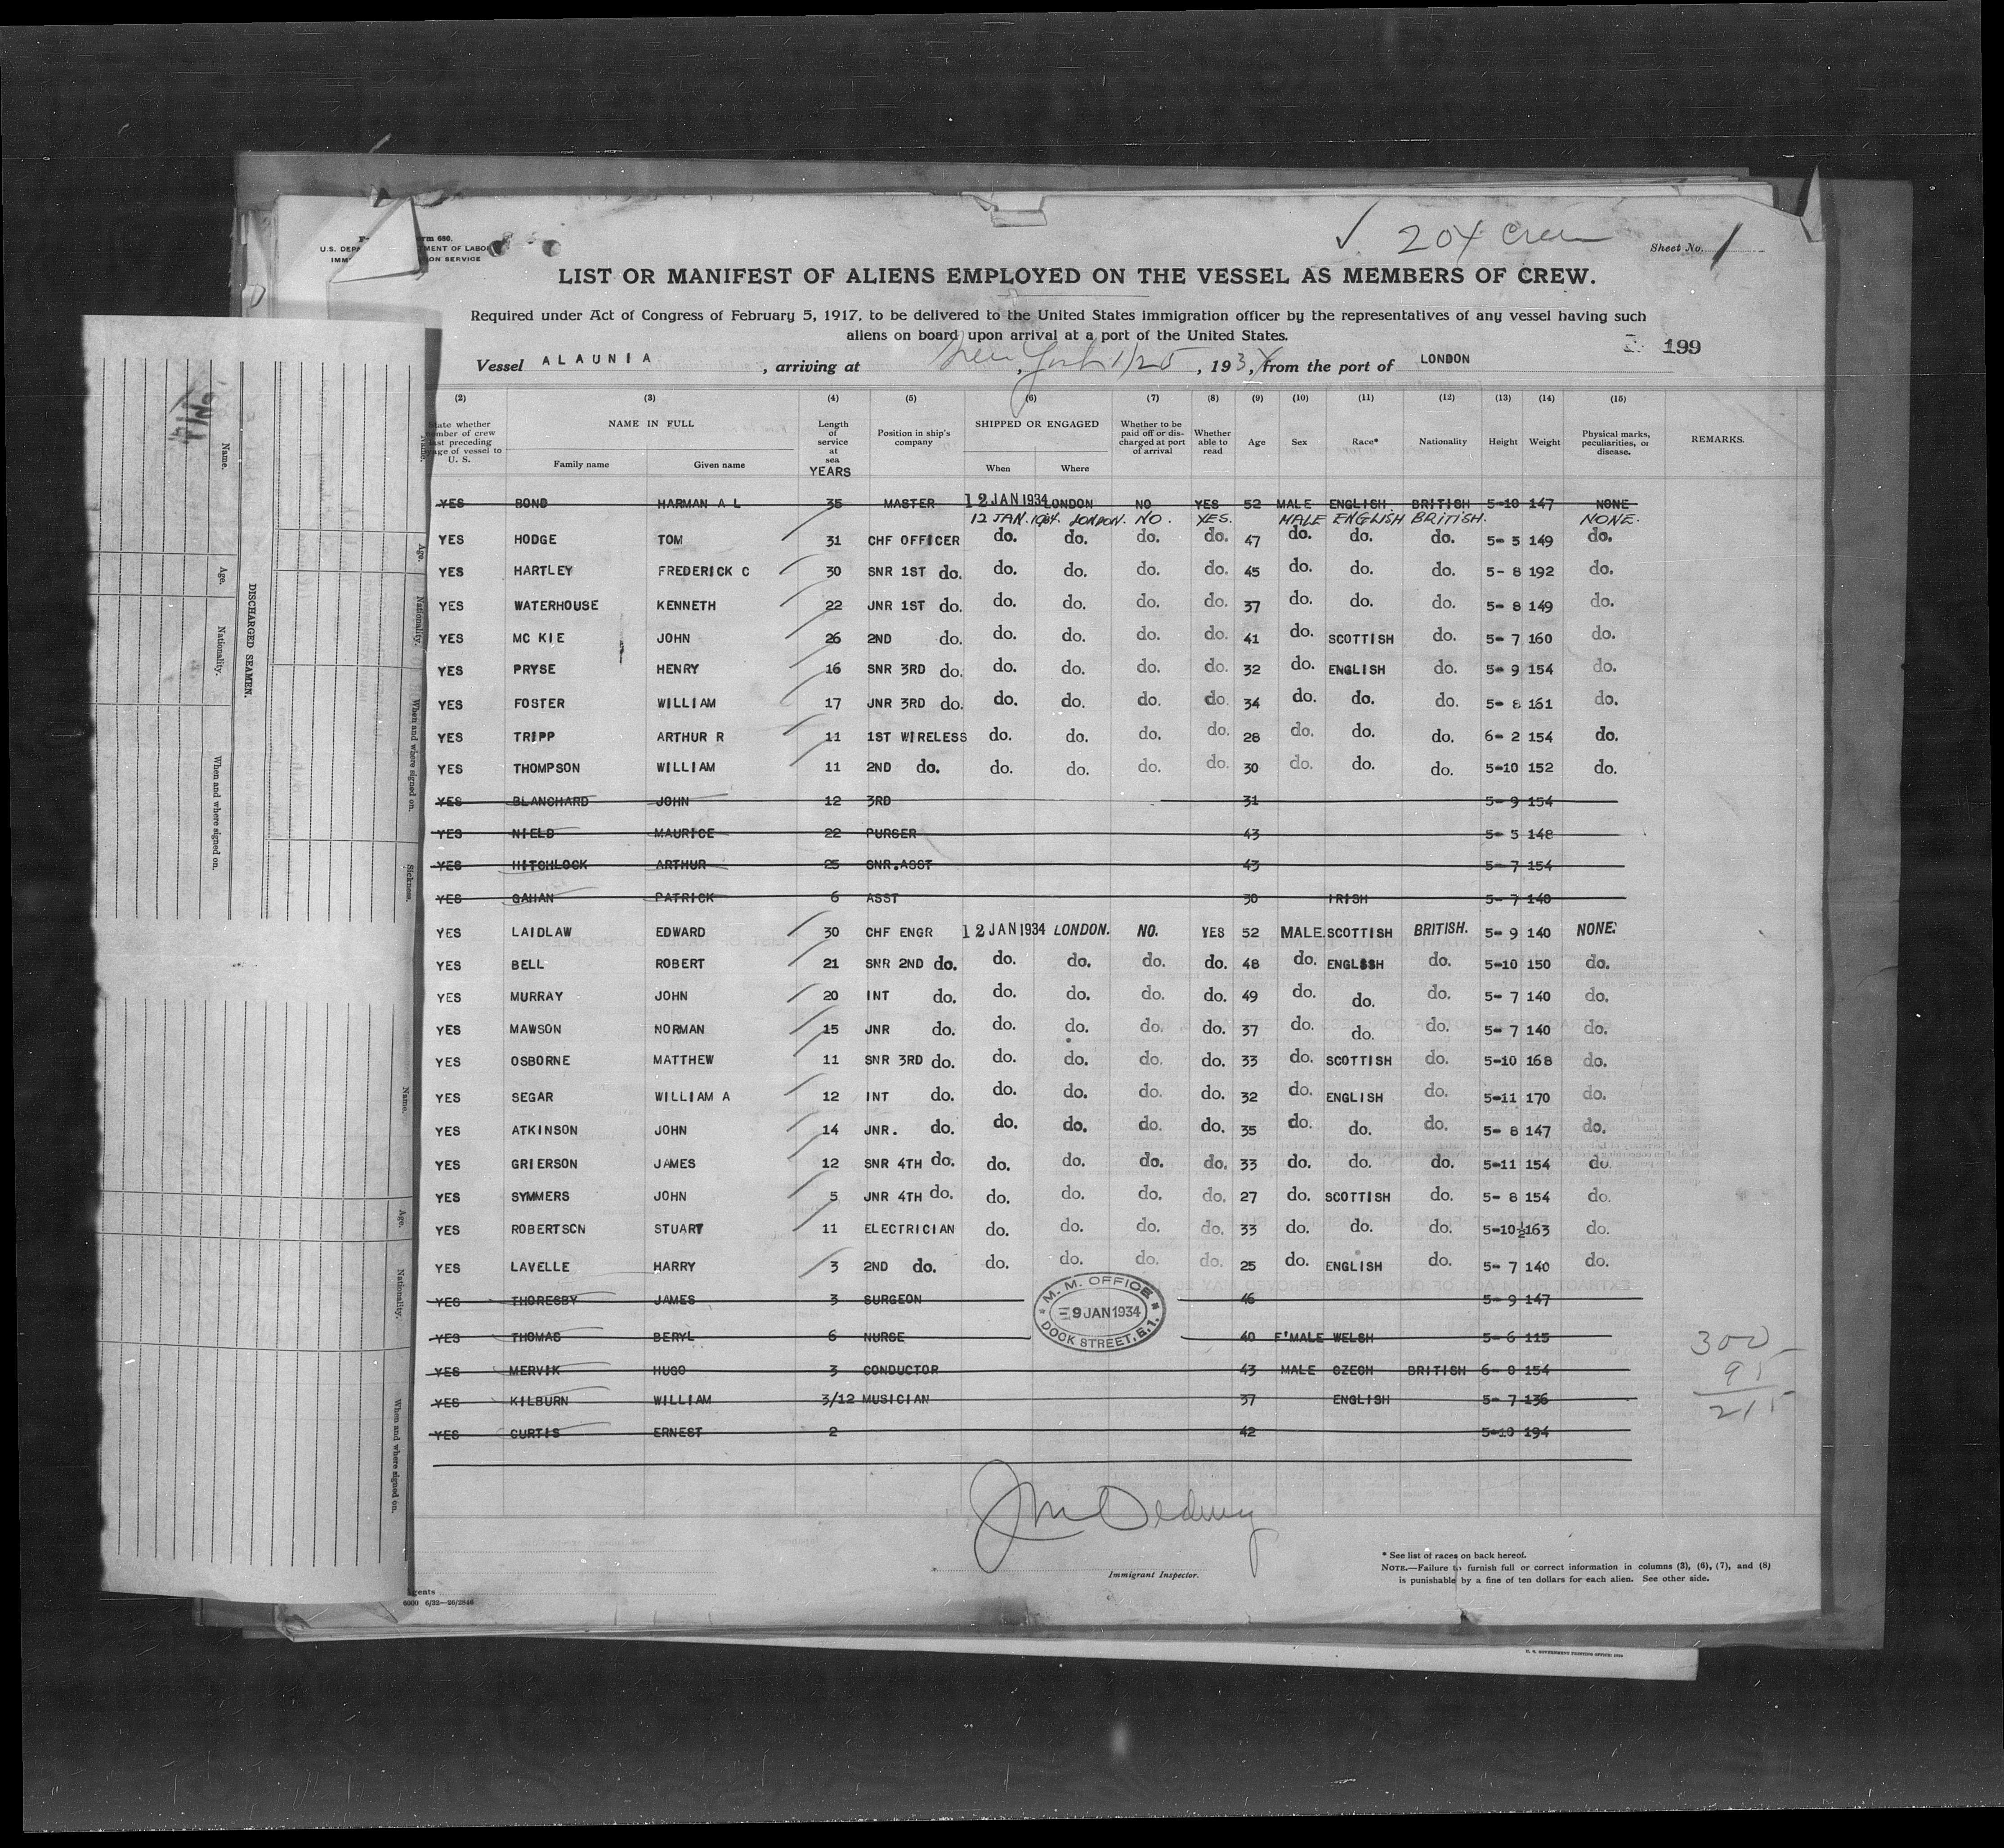 ✓ 204 Crew
Sheet No. 1
rm 680.
U.S. DEPA MENT OF LABOR
IMM ON SERVICE
LIST OR MANIFEST OF ALIENS EMPLOYED ON THE VESSEL AS MEMBERS OF CREW.
Required under Act of Congress of February 5, 1917, to be delivered to the United States immigration officer by the representatives of any vessel having such
aliens on board upon arrival at a port of the United States.
199
Vessel ALAUNIA, arriving at New York 1/25, 1934, from the port of LONDON
(2) (3) (4) (5) (6) (7) (8) (9) (10) (11) (12) (13) (14) (15)
State whether member of crew last preceding voyage of vessel to U. S.
NAME IN FULL
Family name Given name
Length of service at sea YEARS
Position in ship's company
SHIPPED OR ENGAGED
When Where
Whether to be paid off or discharged at port of arrival
Whether able to read
Age Sex Race* Nationality Height Weight
Physical marks, peculiarities, or disease.
REMARKS.
YES BOND HARMAN A L 35 MASTER 12 JAN 1934 LONDON NO YES 52 MALE ENGLISH BRITISH 5-10 147 NONE
12 JAN. 1934. LONDON. NO. YES. MALE ENGLISH BRITISH. NONE.
YES HODGE TOM 31 CHF OFFICER do. do. do. do. 47 do. do. do. 5- 5 149 do.
YES HARTLEY FREDERICK C 30 SNR 1ST do. do. do. do. do. 45 do. do. do. 5- 8 192 do.
YES WATERHOUSE KENNETH 22 JNR 1ST do. do. do. do. do. 37 do. do. do. 5- 8 149 do.
YES MC KIE JOHN 26 2ND do. do. do. do. do. 41 do. SCOTTISH do. 5- 7 160 do.
YES PRYSE HENRY 16 SNR 3RD do. do. do. do. do. 32 do. ENGLISH do. 5- 9 154 do.
YES FOSTER WILLIAM 17 JNR 3RD do. do. do. do. do. 34 do. do. do. 5- 8 161 do.
YES TRIPP ARTHUR R 11 1ST WIRELESS do. do. do. do. 28 do. do. do. 6- 2 154 do.
YES THOMPSON WILLIAM 11 2ND do. do. do. do. do. 30 do. do. do. 5-10 152 do.
YES BLANCHARD JOHN 12 3RD 31 5- 9 154
YES NIELD MAURICE 22 PURSER 43 5- 5 148
YES HITCHLOCK ARTHUR 25 SNR.ASST 43 5- 7 154
YES GAHAN PATRICK 6 ASST 30 IRISH 5- 7 140
YES LAIDLAW EDWARD 30 CHF ENGR 12 JAN 1934 LONDON. NO. YES 52 MALE. SCOTTISH BRITISH. 5- 9 140 NONE.
YES BELL ROBERT 21 SNR 2ND do. do. do. do. do. 48 do. ENGLSSH do. 5-10 150 do.
YES MURRAY JOHN 20 INT do. do. do. do. do. 49 do. do. do. 5- 7 140 do.
YES MAWSON NORMAN 15 JNR do. do. do. do. do. 37 do. do. do. 5- 7 140 do.
YES OSBORNE MATTHEW 11 SNR 3RD do. do. do. do. do. 33 do. SCOTTISH do. 5-10 168 do.
YES SEGAR WILLIAM A 12 INT do. do. do. do. do. 32 do. ENGLISH do. 5-11 170 do.
YES ATKINSON JOHN 14 JNR. do. do. do. do. do. 35 do. do. do. 5- 8 147 do.
YES GRIERSON JAMES 12 SNR 4TH do. do. do. do. do. 33 do. do. do. 5-11 154 do.
YES SYMMERS JOHN 5 JNR 4TH do. do. do. do. do. 27 do. SCOTTISH do. 5- 8 154 do.
YES ROBERTSCN STUART 11 ELECTRICIAN do. do. do. do. 33 do. do. do. 5-10½ 163 do.
YES LAVELLE HARRY 3 2ND do. do. do. do. do. 25 do. ENGLISH do. 5- 7 140 do.
YES THORESBY JAMES 3 SURGEON 46 5- 9 147
YES THOMAS BERYL 6 NURSE 40 F'MALE WELSH 5- 6 115
YES MERVIK HUGO 3 CONDUCTOR 43 MALE CZECH BRITISH 6- 0 154
YES KILBURN WILLIAM 3/12 MUSICIAN 37 ENGLISH 5- 7 136
YES CURTIS ERNEST 2 42 5-10 194
M. M. OFFICE
9 JAN 1934
DOCK STREET, E.1.
300
95
215
Immigrant Inspector.
* See list of races on back hereof.
NOTE.—Failure to furnish full or correct information in columns (3), (6), (7), and (8)
is punishable by a fine of ten dollars for each alien. See other side.
gents
6000 6/32—26/2846
U. S. GOVERNMENT PRINTING OFFICE
DISCHARGED SEAMEN.
Name. Age. Nationality. When and where signed on.
Name. Age. Nationality. When and where signed on. Sickness.
Name. Age. Nationality. When and where signed on.